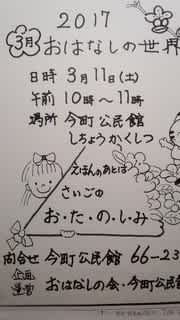 2017
3月 おはなしの世界
日時 3月11日(土)
午前 10時〜11時
場所 今町公民館
しちょうかくしつ
えほんのあとは
さいごの
お・た・の・し・み
問合せ 今町公民館 66-23
企画
運営 おはなしの会・今町公民館